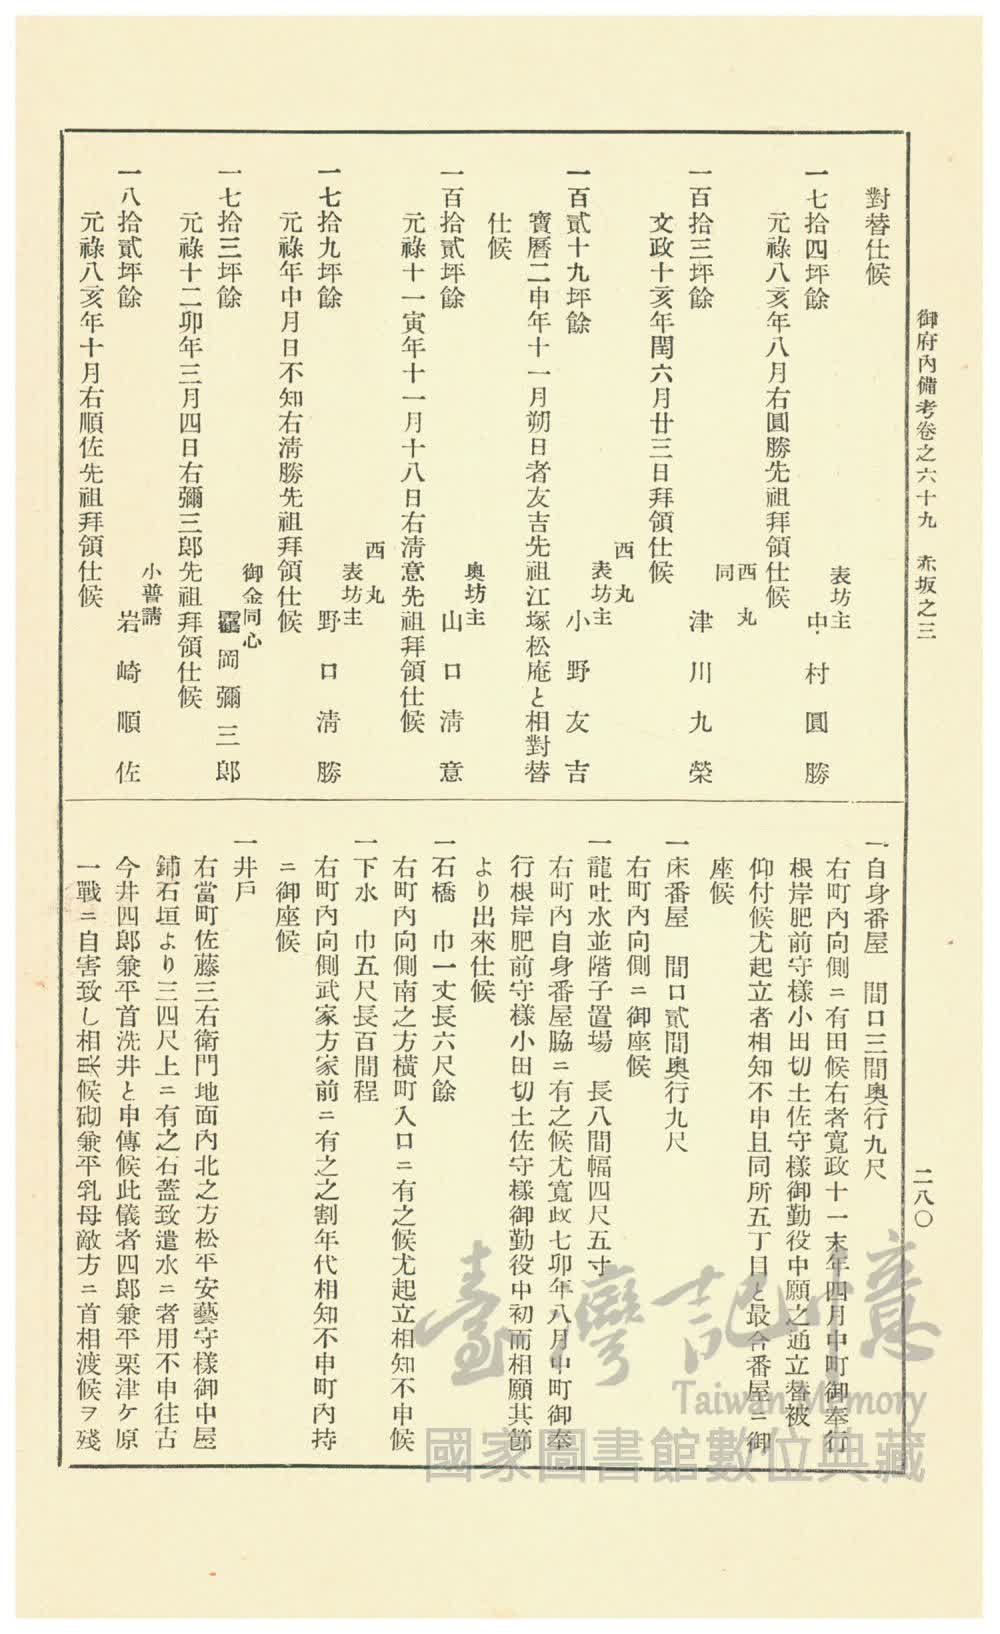 御府內備考卷之六十九　赤坂之三
二八〇
對替仕候
一七拾四坪餘
表坊主
中村圓勝
元祿八亥年八月右圓勝先祖拜領仕候
一百拾三坪餘
西丸
同
津川九榮
文政十亥年閏六月廿三日拜領仕候
一百貳十九坪餘
西丸
表坊主
小野友吉
寶曆二申年十一月朔日者友吉先祖江塚松庵と相對替
仕候
一百拾貳坪餘
奧坊主
山口淸意
元祿十一寅年十一月十八日右淸意先祖拜領仕候
一七拾九坪餘
西丸
表坊主
野口淸勝
元祿年中月日不知右淸勝先祖拜領仕候
一七拾三坪餘
御金同心
岡彌三郎
元祿十二卯年三月四日右彌三郎先祖拜領仕候
一八拾貳坪餘
小普請
岩崎順佐
元祿八亥年十月右順佐先祖拜領仕候
一自身番屋　間口三間奧行九尺
右町內向側ニ有田候右者寬政十一末年四月中町御奉行
根岸肥前守樣小田切土佐守樣御勤役中願之通立替被
仰付候尤起立者相知不申且同所五丁目と最合番屋ニ御
座候
一床番屋　間口貳間奧行九尺
右町內向側ニ御座候
一龍吐水並階子置場　長八間幅四尺五寸
右町內自身番屋脇ニ有之候尤寬政七卯年八月中町御奉
行根岸肥前守樣小田切土佐守樣御勤役中初而相願其節
より出來仕候
一石橋　巾一丈長六尺餘
右町內向側南之方橫町入口ニ有之候尤起立相知不申候
一下水　巾五尺長百間程
右町內向側武家方家前ニ有之之割年代相知不申町內持
ニ御座候
一井戶
右當町佐藤三右衞門地面內北之方松平安藝守樣御中屋
鋪石垣より三四尺上ニ有之石蓋致遣水ニ者用不申往古
今井四郎兼平首洗井と申傳候此儀者四郎兼平栗津ケ原
一戰ニ自害致し相候砌兼平乳母敵方ニ首相渡候ヲ殘
臺灣記憶
Taiwan Memory
國家圖書館數位典藏